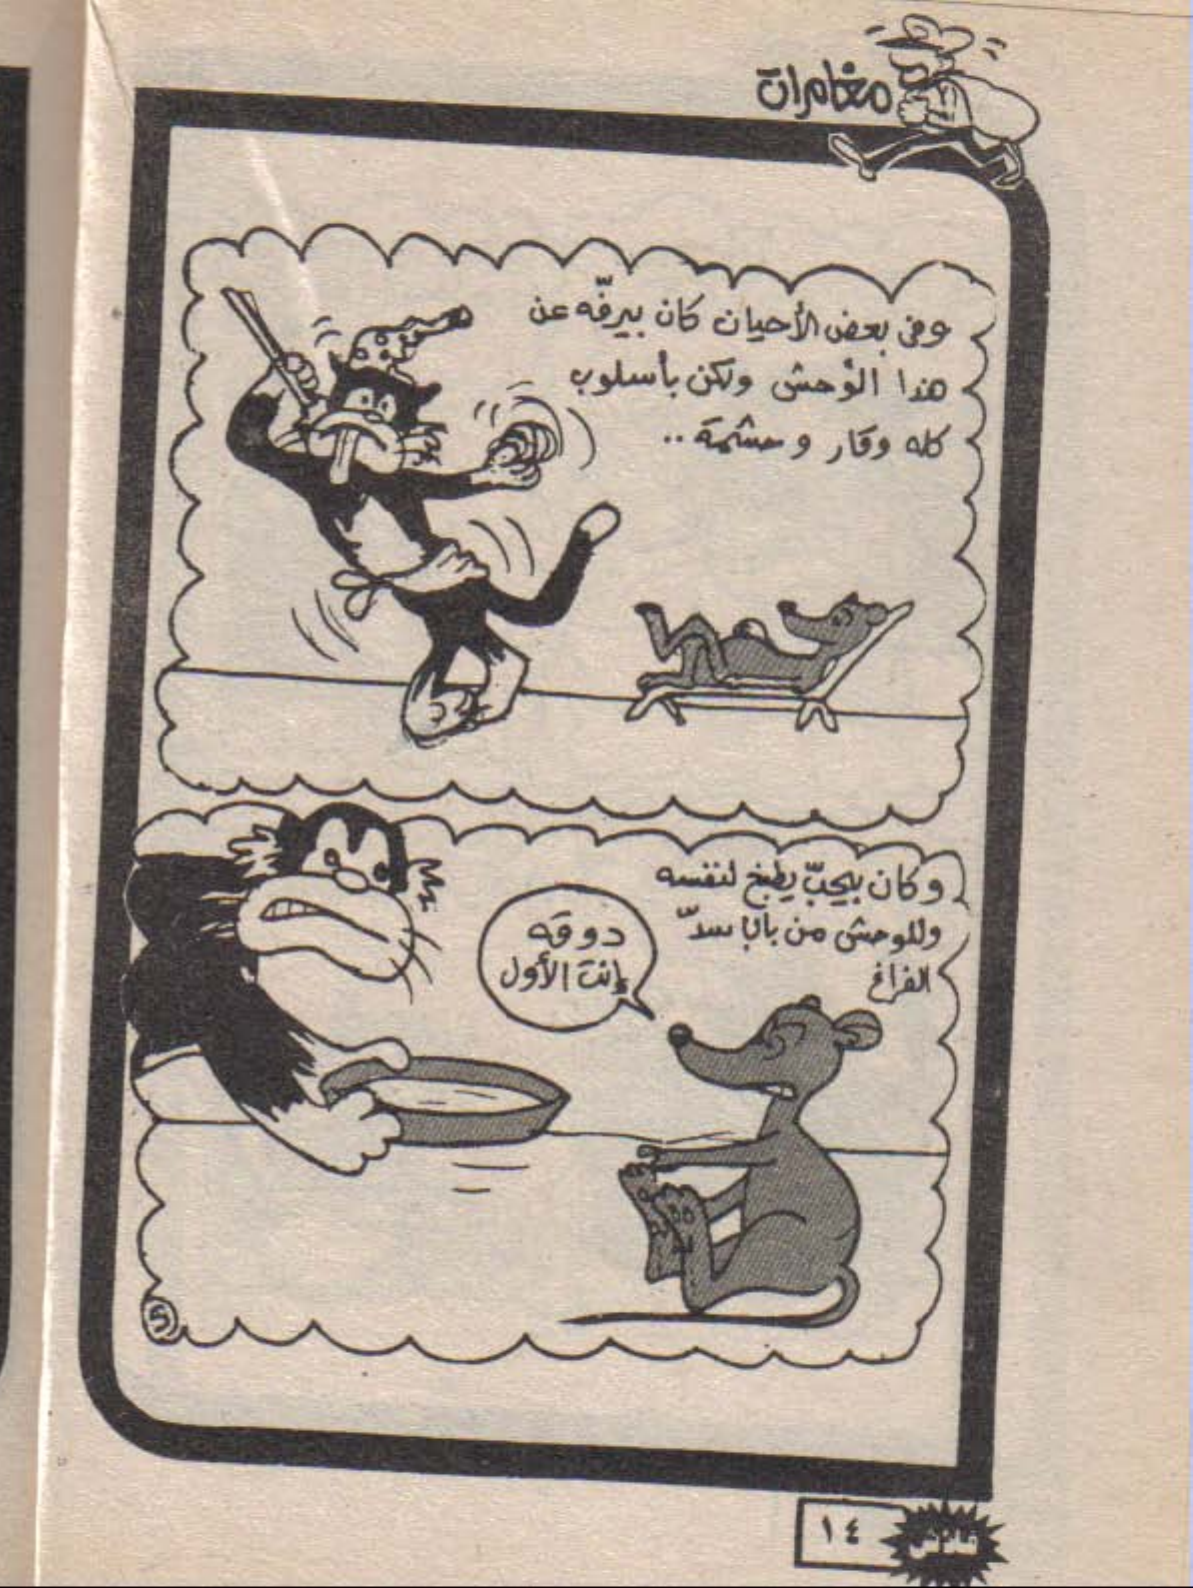 مغامرات
وفى بعض الأحيان كان بيرفّه عن
هذا الوحش ولكن بأسلوب
كله وقار وحشمة ..
وكان بيحبّ يطبخ لنفسه
وللوحش من باب سدّ
الفراغ
دوقه
إنت الأول
5
فلاش
١٤